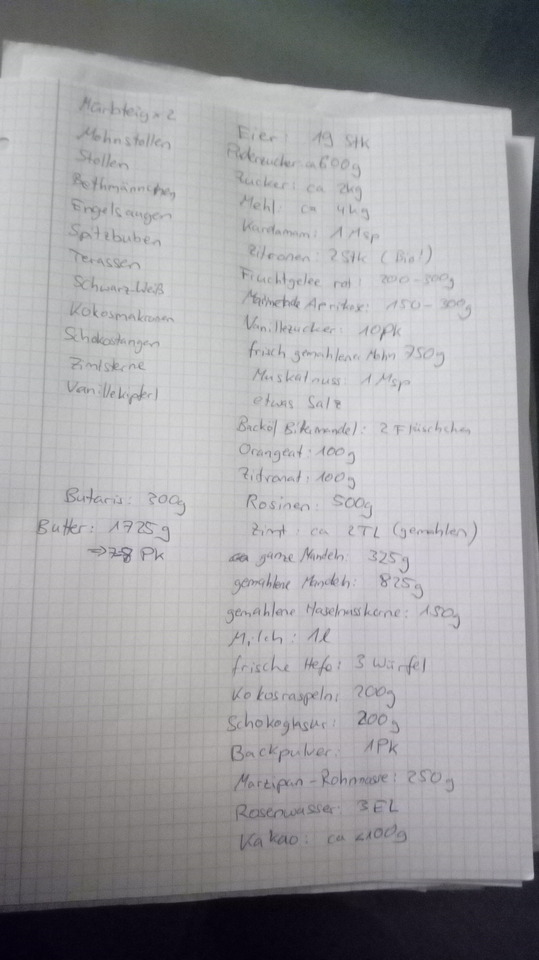 Mürbteig x 2
Mohnstollen
Stollen
Bethmännchen
Engelsaugen
Spitzbuben
Terassen
Schwarz-Weiß
Kokosmakronen
Schokostangen
Zimtsterne
Vanillekipferl
Butaris: 300g
Butter: 1725g
⇒ 7-8 Pk
Eier: 19 Stk
Puderzucker: ca 600g
Zucker: ca 2kg
Mehl: ca 4kg
Kardamam: 1 Msp
Zitronen: 2 Stk (Bio!)
Fruchtgelee rot: 200-300g
Marmelade Aprikose: 150-300g
Vanillezucker: 10 Pk
frisch gemahlener Mohn 750g
Muskatnuss: 1 Msp
etwas Salz
Backöl Bittermandel: 2 Fläschchen
Orangeat: 100g
Zitronat: 100g
Rosinen: 500g
Zimt: ca 2TL (gemahlen)
ganze Mandeln: 325g
gemahlene Mandeln: 825g
gemahlene Haselnusskerne: 150g
Milch: 1l
frische Hefe: 3 Würfel
Kokosraspeln: 200g
Schokoglasur: 200g
Backpulver: 1Pk
Marzipan-Rohmasse: 250g
Rosenwasser: 3EL
Kakao: ca <100g